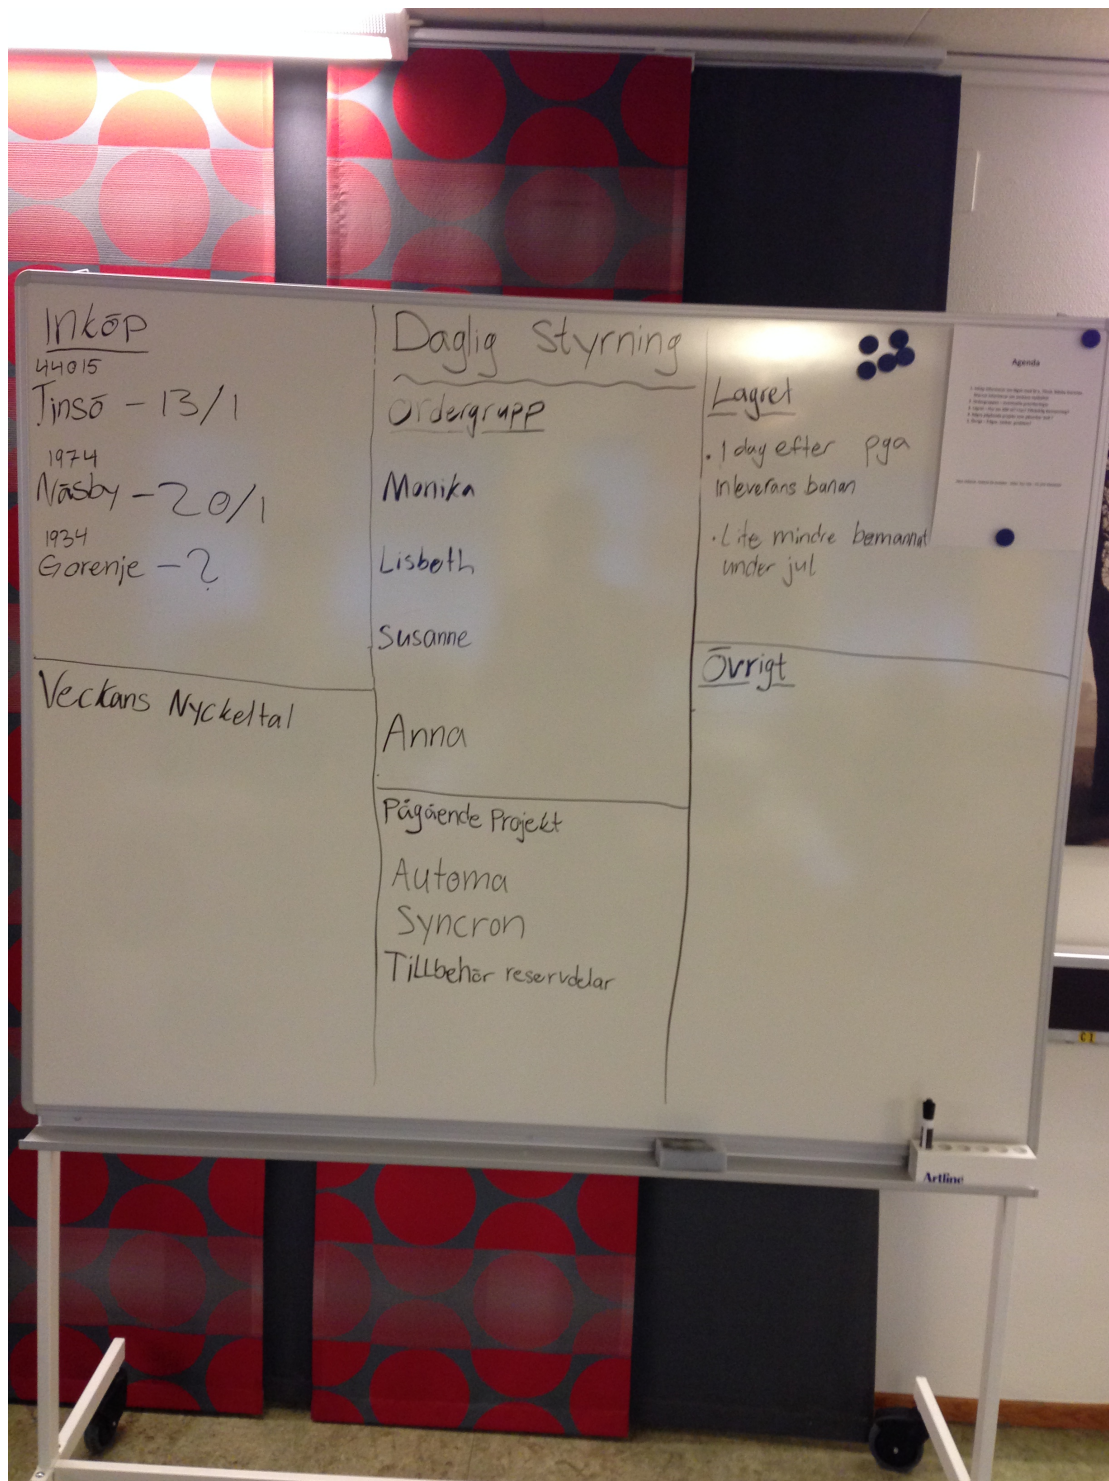 Inköp
44015
Tinsö - 13/1
1974
Näsby - 20/1
1934
Gorenje - ?
Veckans Nyckeltal
Daglig Styrning
Ordergrupp
Monika
Lisbeth
Susanne
Anna
Pågående Projekt
Automa
Syncron
Tillbehör reservdelar
Lagret
• 1 dag efter pga
inleverans banan
• Lite mindre bemannat
under jul
Övrigt
Agenda
Artline